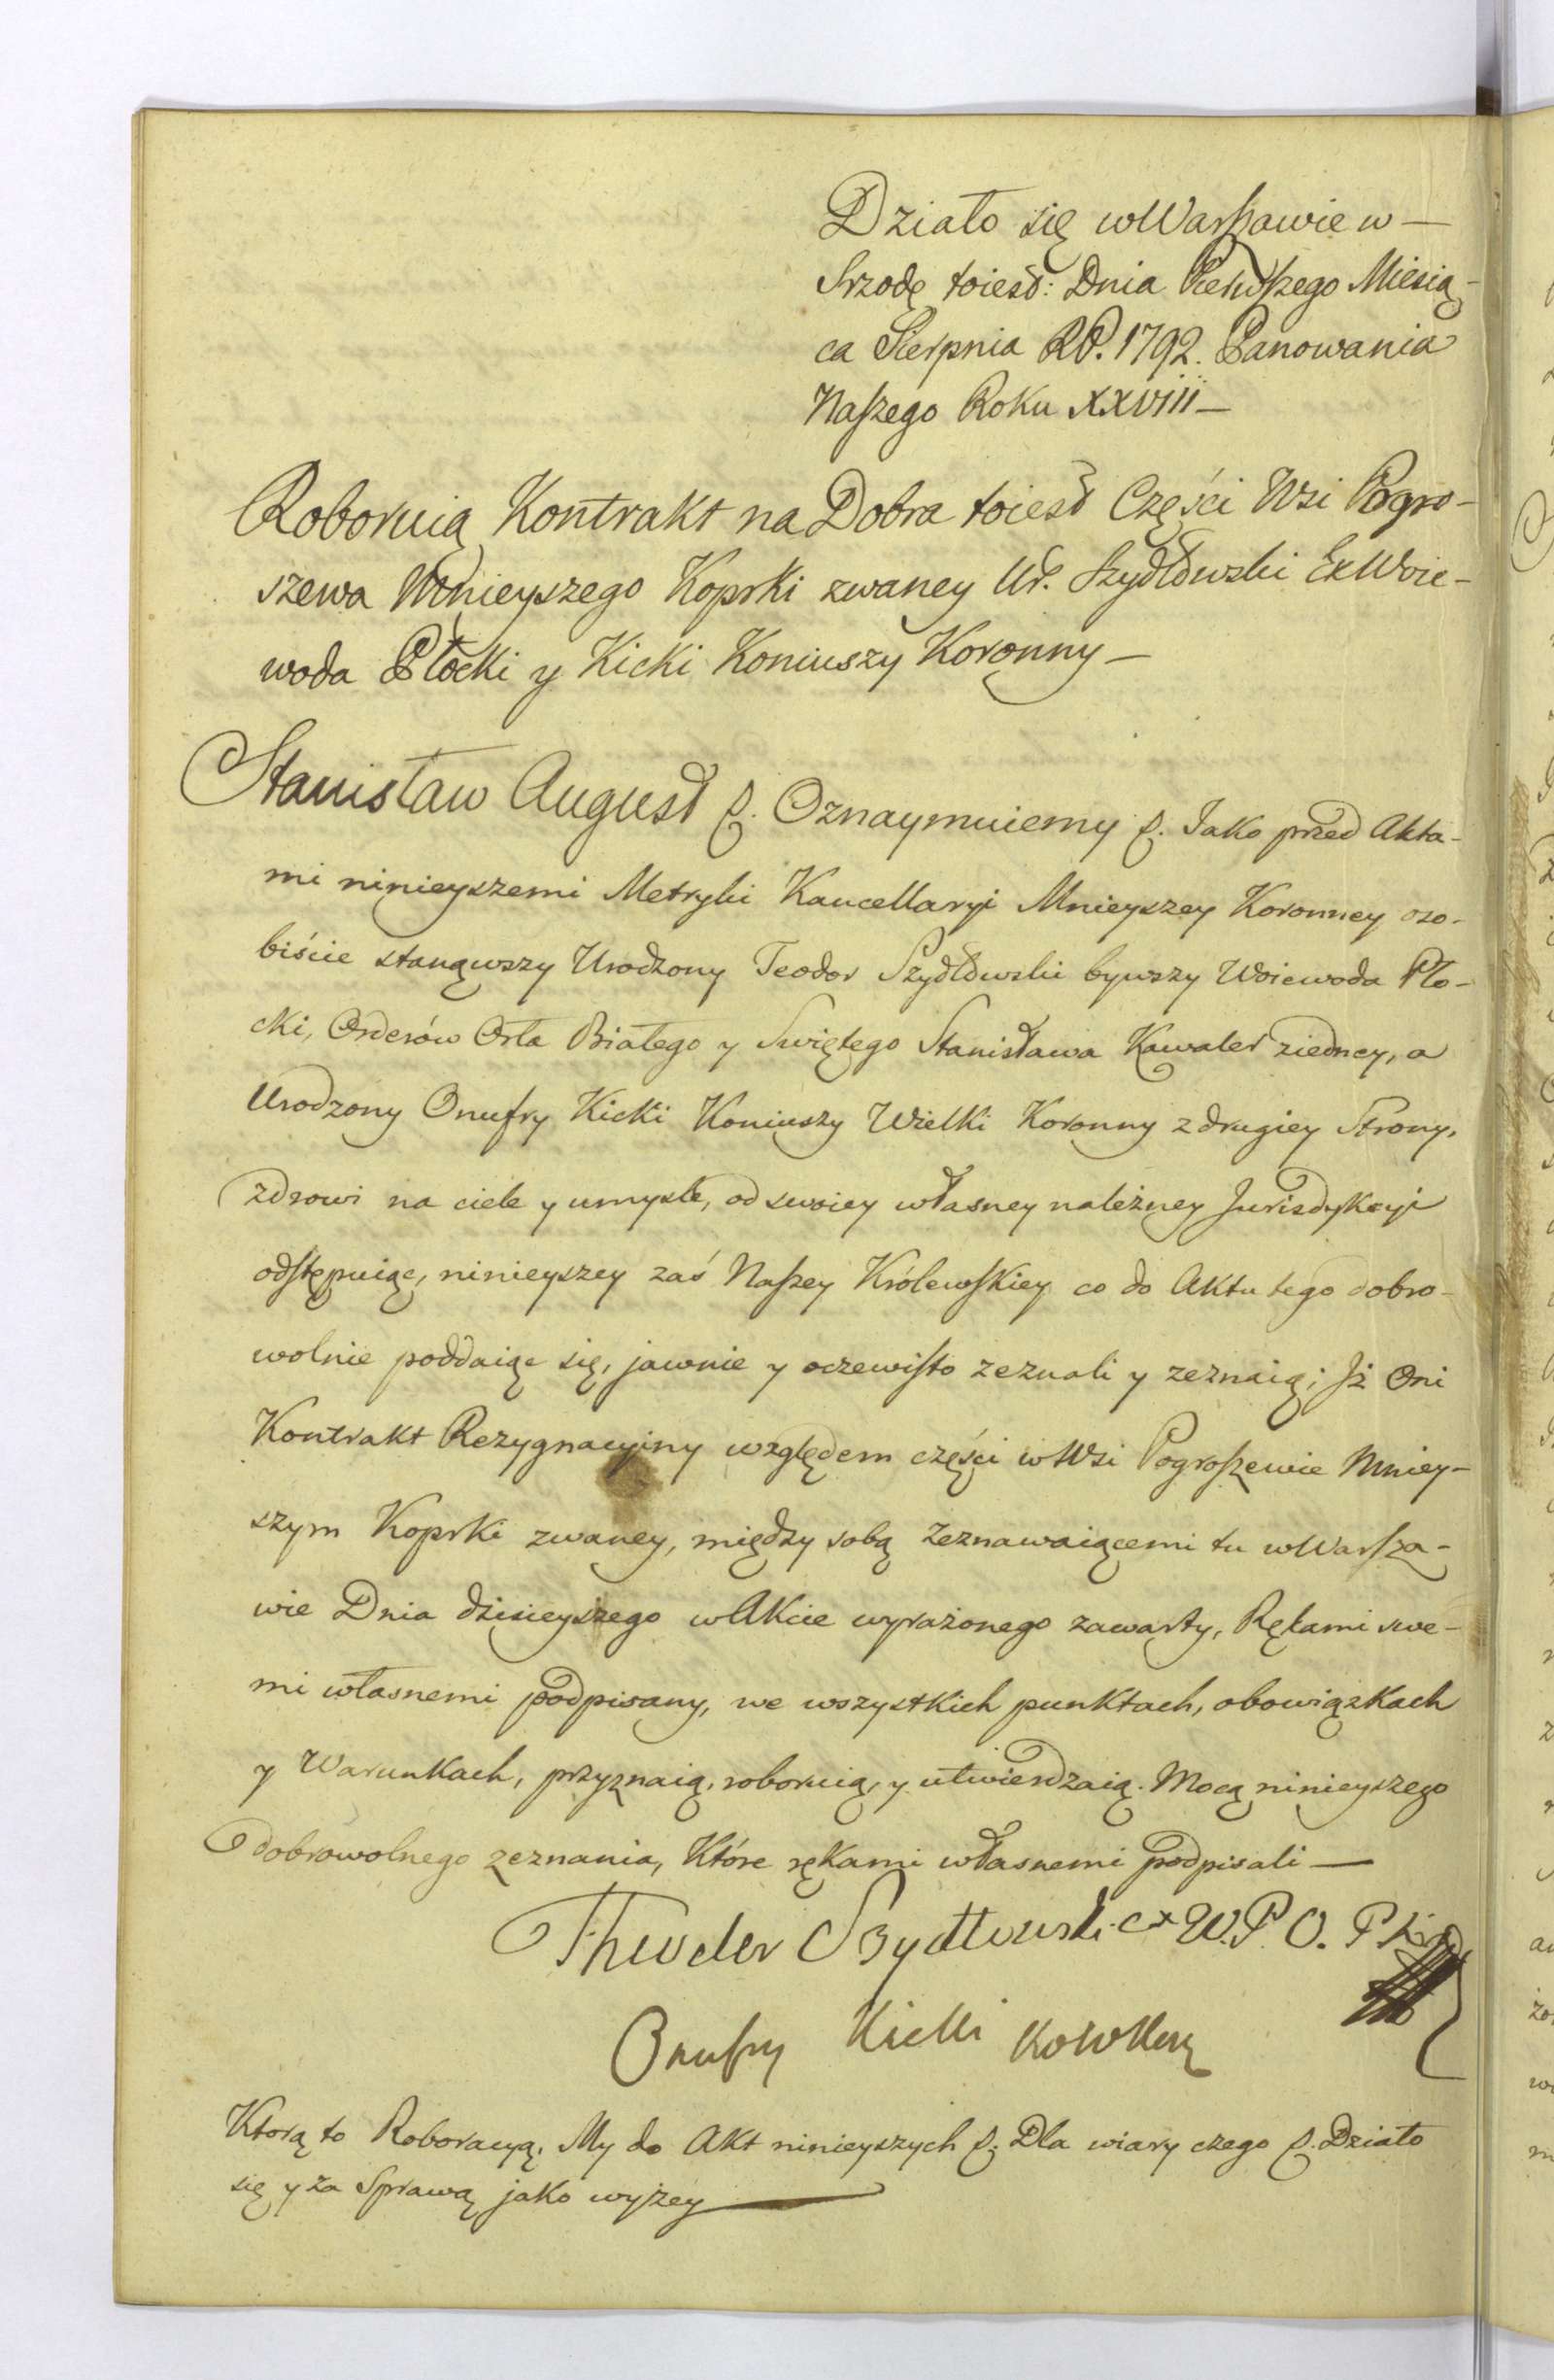 Działo się w Warszawie w —
Srzodę toiest: Dnia Pierwszego Miesią-
ca Sierpnia RP. 1792. Panowania
Naszego Roku XXVIII —
Roboruią Kontrakt na Dobra toiest Części Wsi Pogro-
szewa Mnieyszego Koprki zwaney Ur. Szydłowski Ex Woie-
woda Płocki y Kicki Koniuszy Koronny —
Stanisław August &. Oznaymuiemy &. Jako przed Akta-
mi ninieyszemi Metryki Kancellaryi Mnieyszey Koronney oso-
biście stanąwszy Urodzony Teodor Szydłowski bywszy Woiewoda Pło-
cki, Orderów Orła Białego y Swiętego Stanisława Kawaler ziedney, a
Urodzony Onufry Kicki Koniuszy Wielki Koronny z drugiey Strony,
zdrowi na ciele y umysle, od swoiey własney należney Jurisdykcyi
odstępuiąc, ninieyszey zaś Naszey Królewskiey co do Aktu tego dobro-
wolnie poddaiąc się, jawnie y oczewisto zeznali y zeznaią; Iż Oni
Kontrakt Rezygnacyiny względem części w Wsi Pogroszewie Mniey-
szym Koprki zwaney, między sobą Zeznawaiącemi tu w Warsza-
wie Dnia dzisieyszego w Akcie wyrażonego zawarty, Rękami swe-
mi własnemi podpisany, we wszystkich punktach, obowiązkach
y Warunkach, przyznaią, roboruią, y utwierdzaią. Mocą ninieyszego
dobrowolnego zeznania, Które rękami własnemi podpisali —
Theodor Szydłowski ex W. P. O. P.
Onufry Kicki
Ktorą to Roboracyą, My do Akt ninieyszych &. Dla wiary czego &. Działo
się y za Sprawą jako wyżey